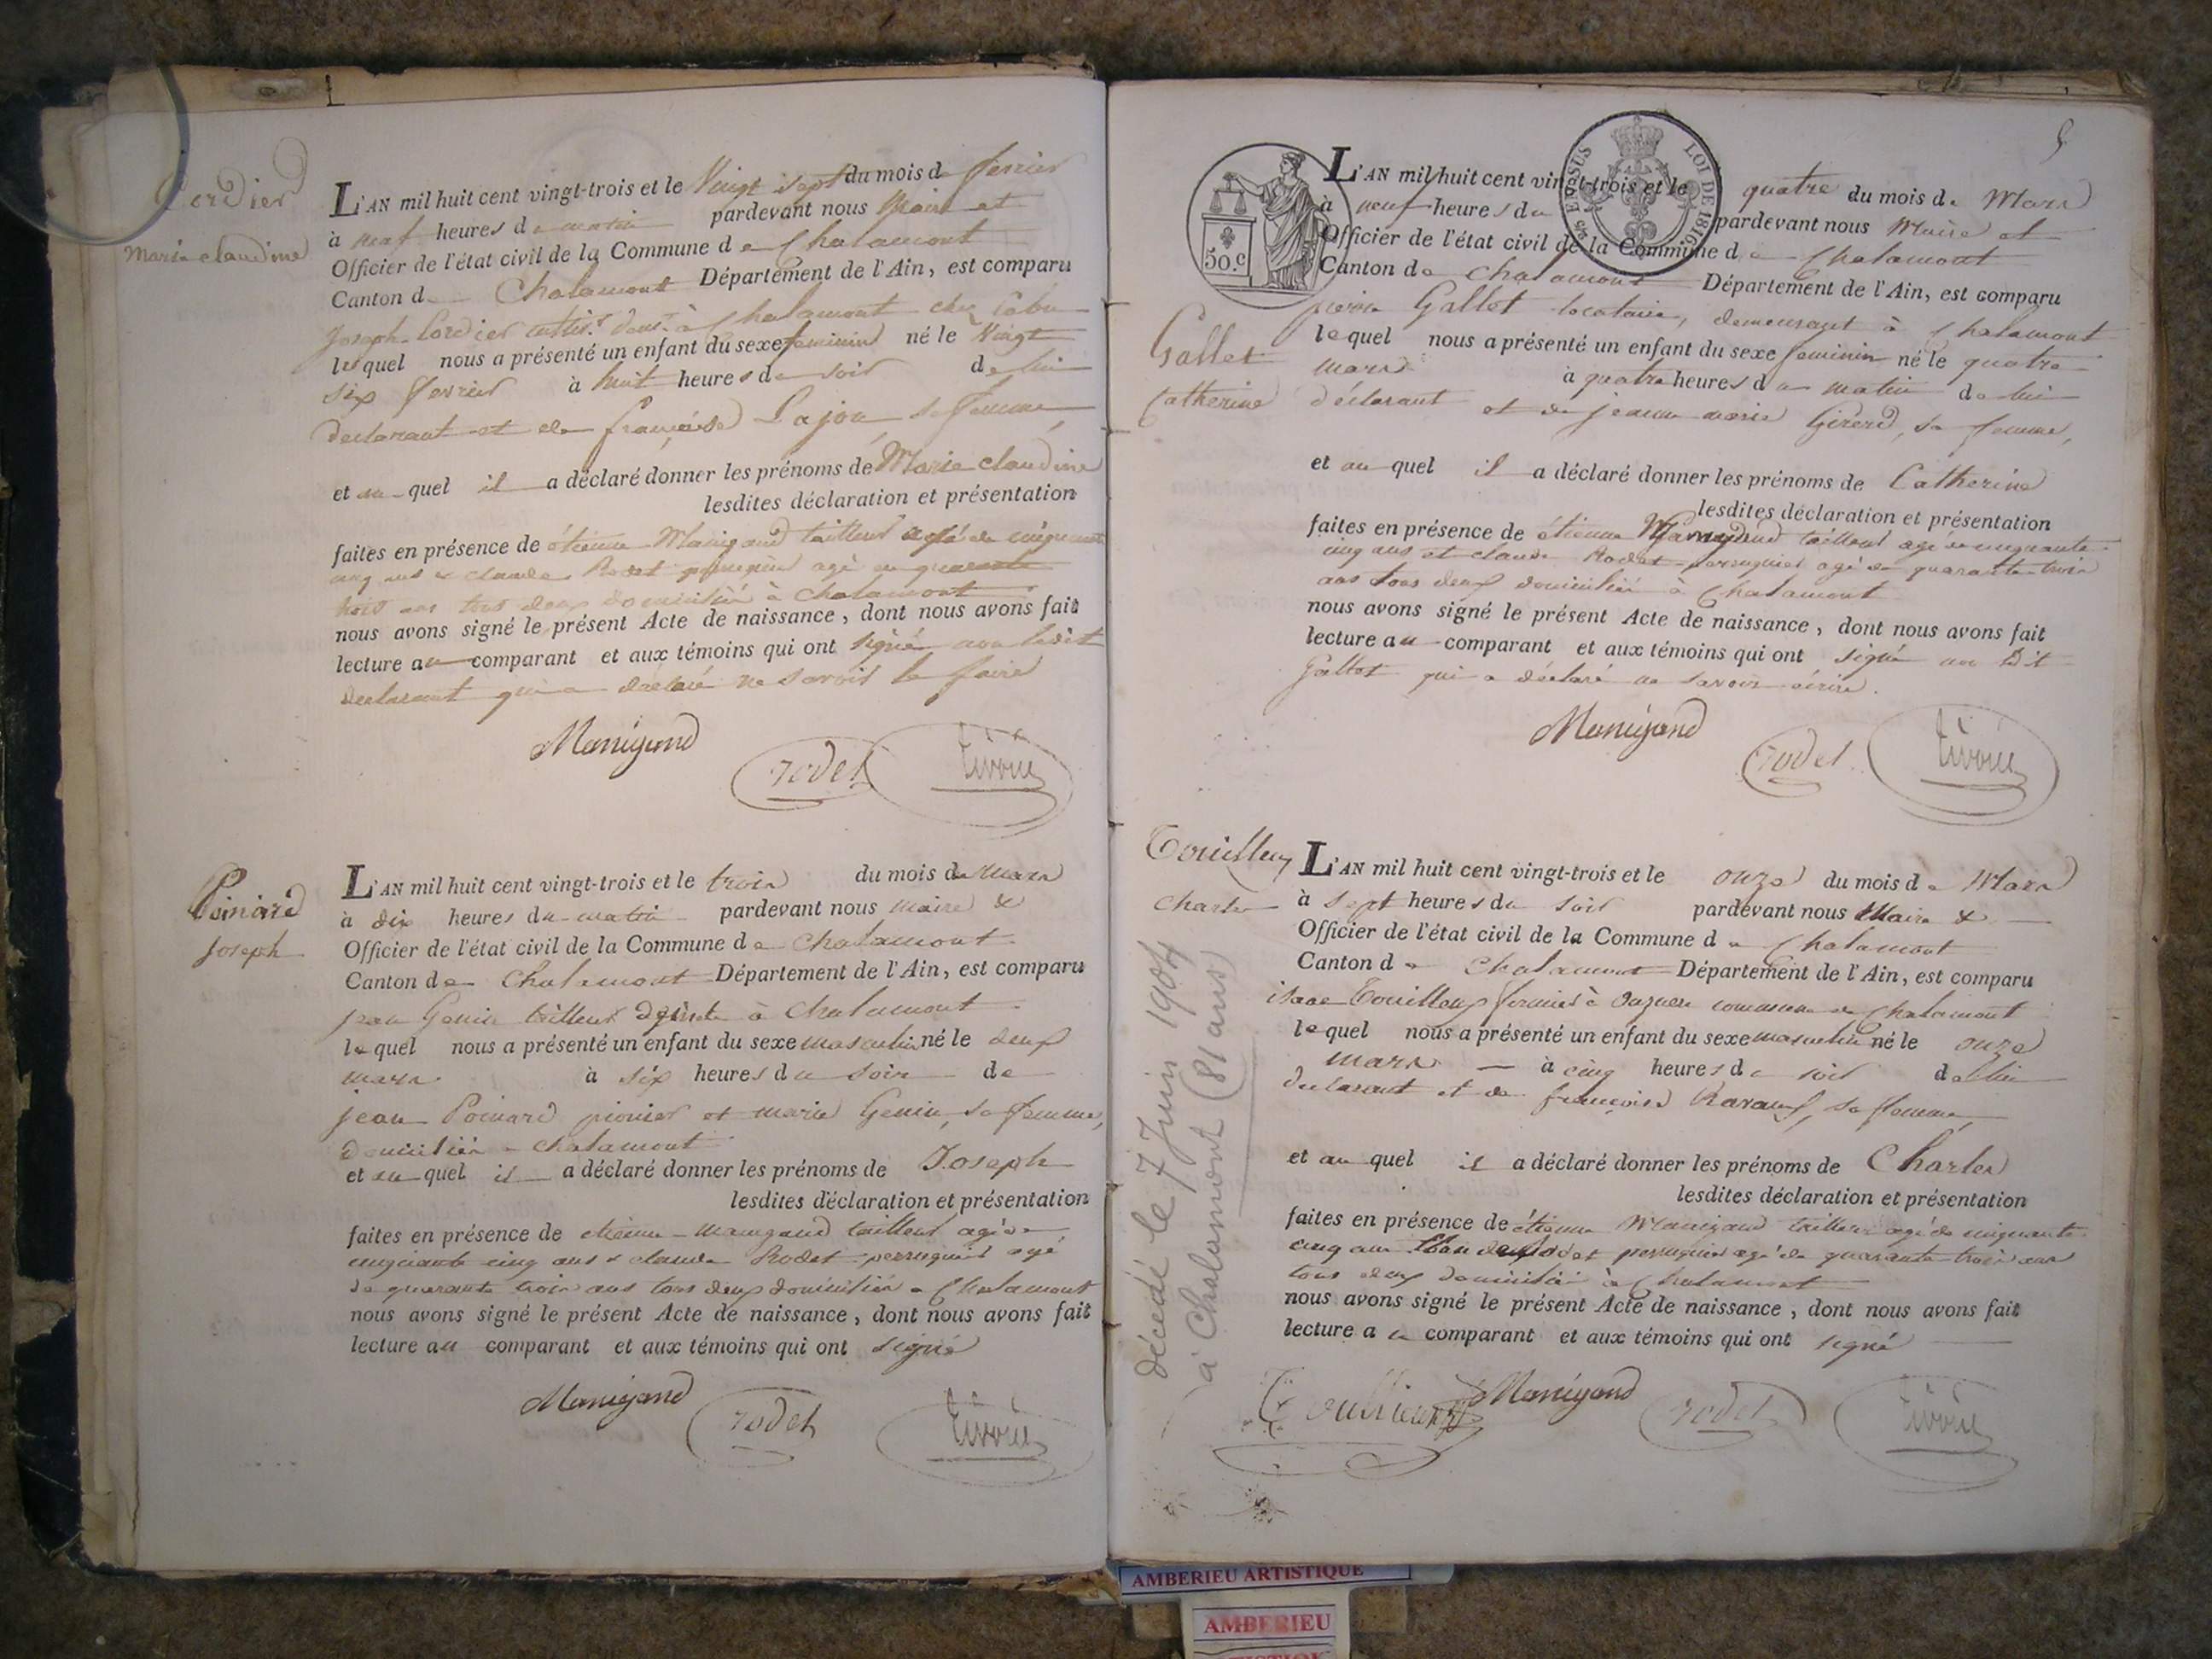 Cordier
Marie claudine
L'AN mil huit cent vingt-trois et le Vingt sept du mois de fevrier
à neuf heures du matin pardevant nous Maire et
Officier de l'état civil de la Commune de Chalamont
Canton de Chalamont Département de l'Ain, est comparu
Joseph Cordier cultiv.r dem.t à Chalamont chez
lequel nous a présenté un enfant du sexe feminin né le Vingt
six fevrier à huit heures du soir de lui
declarant et de françoise Lajon sa femme
et auquel il a déclaré donner les prénoms de Marie claudine
lesdites déclaration et présentation
faites en présence de étienne Manigand tailleur agé de cinquante
cinq ans & claude Rodet perruquier agé de quarante
trois ans tous deux domiciliés à Chalamont
nous avons signé le présent Acte de naissance, dont nous avons fait
lecture au comparant et aux témoins qui ont signé non ledit
declarant qui a declaré ne savoir le faire
Manigand
rodet
tivoin
Poinard
Joseph
L'AN mil huit cent vingt-trois et le trois du mois de mars
à dix heures du matin pardevant nous maire &
Officier de l'état civil de la Commune de Chalamont
Canton de Chalamont Département de l'Ain, est comparu
jean Genin tailleur à Chalamont
lequel nous a présenté un enfant du sexe masculin né le deux
mars à six heures du soir de
jean Poinard pionier et marie Genin, sa femme,
domiciliés a chalamont
et auquel il a déclaré donner les prénoms de Joseph
lesdites déclaration et présentation
faites en présence de etienne manigand tailleur agé de
cinquante cinq ans & claude Rodet perruquier agé
de quarante trois ans tous deux domiciliés a Chalamont
nous avons signé le présent Acte de naissance, dont nous avons fait
lecture au comparant et aux témoins qui ont signé
Manigand
rodet
tivoin
5
50.c
EN SUS
LOI DE 1816
L'AN mil huit cent vingt-trois et le quatre du mois de Mars
à neuf heures du pardevant nous Maire et
Officier de l'état civil de la Commune de Chalamont
Canton de Chalamont Département de l'Ain, est comparu
pierre Gallet locataire, demeurant à Chalamont
Gallet
Catherine
lequel nous a présenté un enfant du sexe feminin né le quatre
mars à quatre heures du matin de lui
déclarant et de jeanne marie Girerd, sa femme,
et auquel il a déclaré donner les prénoms de Catherine
lesdites déclaration et présentation
faites en présence de étienne Manigand tailleur agé de cinquante
cinq ans et claude Rodet perruquier agé de quarante trois
ans tous deux domiciliés à Chalamont
nous avons signé le présent Acte de naissance, dont nous avons fait
lecture au comparant et aux témoins qui ont signé non ledit
Gallet qui a déclaré ne savoir écrire.
Manigand
rodet
tivoin
Touilleux
charles
L'AN mil huit cent vingt-trois et le onze du mois de Mars
à sept heures du soir pardevant nous Maire &
Officier de l'état civil de la Commune de Chalamont
Canton de Chalamont Département de l'Ain, est comparu
isaac Touilleux fermier à commune de Chalamont
lequel nous a présenté un enfant du sexe masculin né le onze
mars à cinq heures du soir de lui
declarant et de françoise Ravaux, sa femme,
et auquel il a déclaré donner les prénoms de Charles
lesdites déclaration et présentation
faites en présence de étienne Manigand tailleur agé de cinquante
cinq ans perruquier agé de quarante trois ans
tous deux domiciliés à Chalamont
nous avons signé le présent Acte de naissance, dont nous avons fait
lecture au comparant et aux témoins qui ont signé
Manigand
rodet
tivoin
décédé le 7 Juin 1904
à Chalamont (81 ans)
AMBERIEU ARTISTIQUE
AMBERIEU